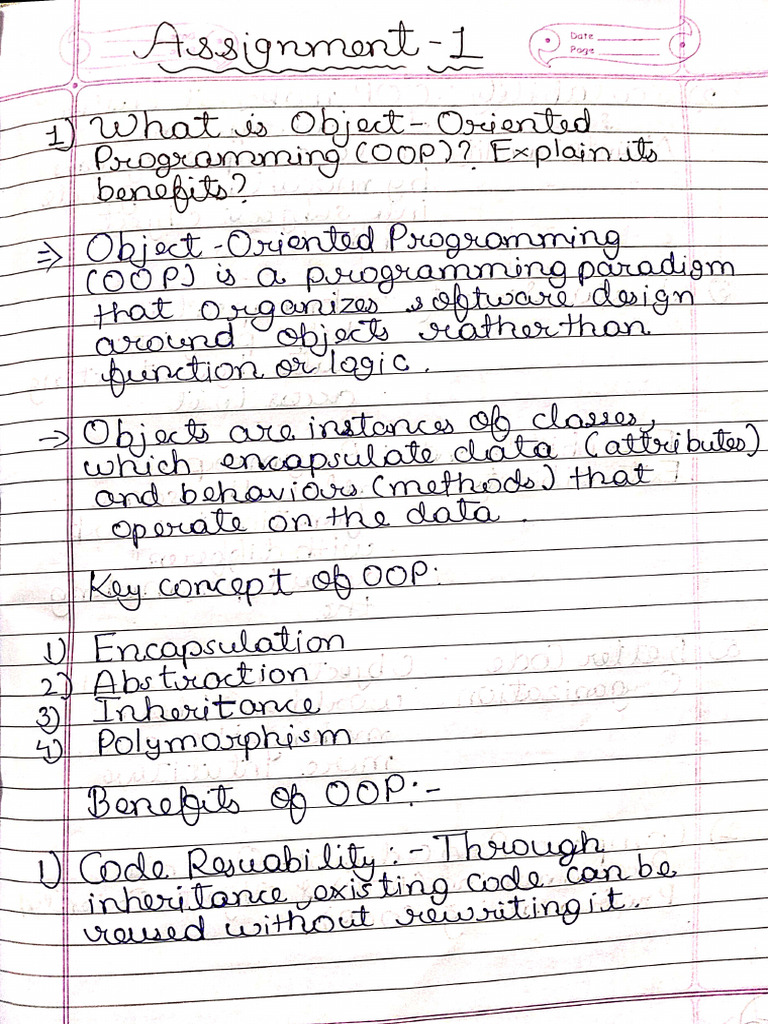 Assignment - 1
Date
Page
1) What is Object-Oriented
Programming (OOP)? Explain its
benefits?
⇒ Object-Oriented Programming
(OOP) is a programming paradigm
that organizes software design
around objects rather than
function or logic.
→ Objects are instances of classes,
which encapsulate data (attributes)
and behaviours (methods) that
operate on the data.
Key concept of OOP:
1) Encapsulation
2) Abstraction
3) Inheritance
4) Polymorphism
Benefits of OOP:-
1) Code Resuability :- Through
inheritance, existing code can be
reused without rewriting it.